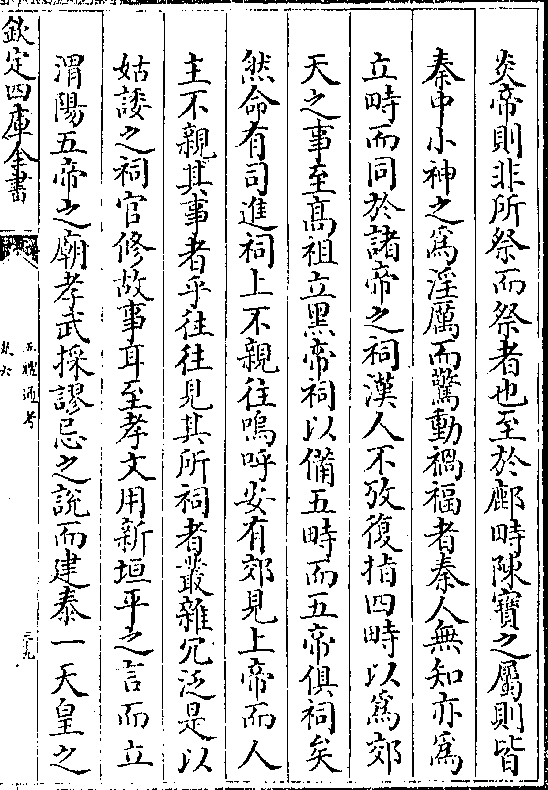 炎帝則非所祭而祭者也至於鄜畤陳寶之屬則皆
秦中小神之為淫厲而驚動禍福者秦人無知亦為
立畤而同於諸帝之祠漢人不攷復指四畤以為郊
天之事至髙祖立黑帝祠以備五畤而五帝俱祠矣
然命有司進祠上不親往嗚呼安有郊見上帝而人
主不親其事者乎往往見其所祠者叢雜冗泛是以
姑諉之祠官修故事耳至孝文用新垣平之言而立
渭陽五帝之廟孝武採謬忌之説而建泰一天皇之
欽定四庫全書
五禮通考
卷六
三九